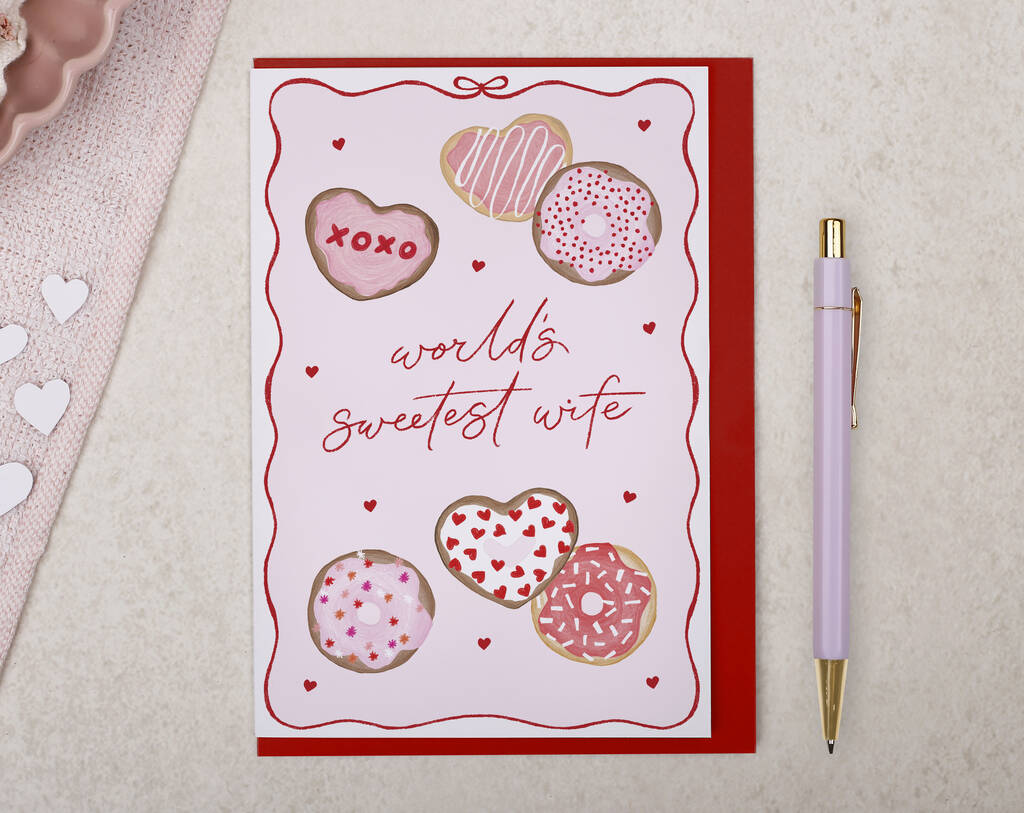 xoxo
world's
sweetest wife